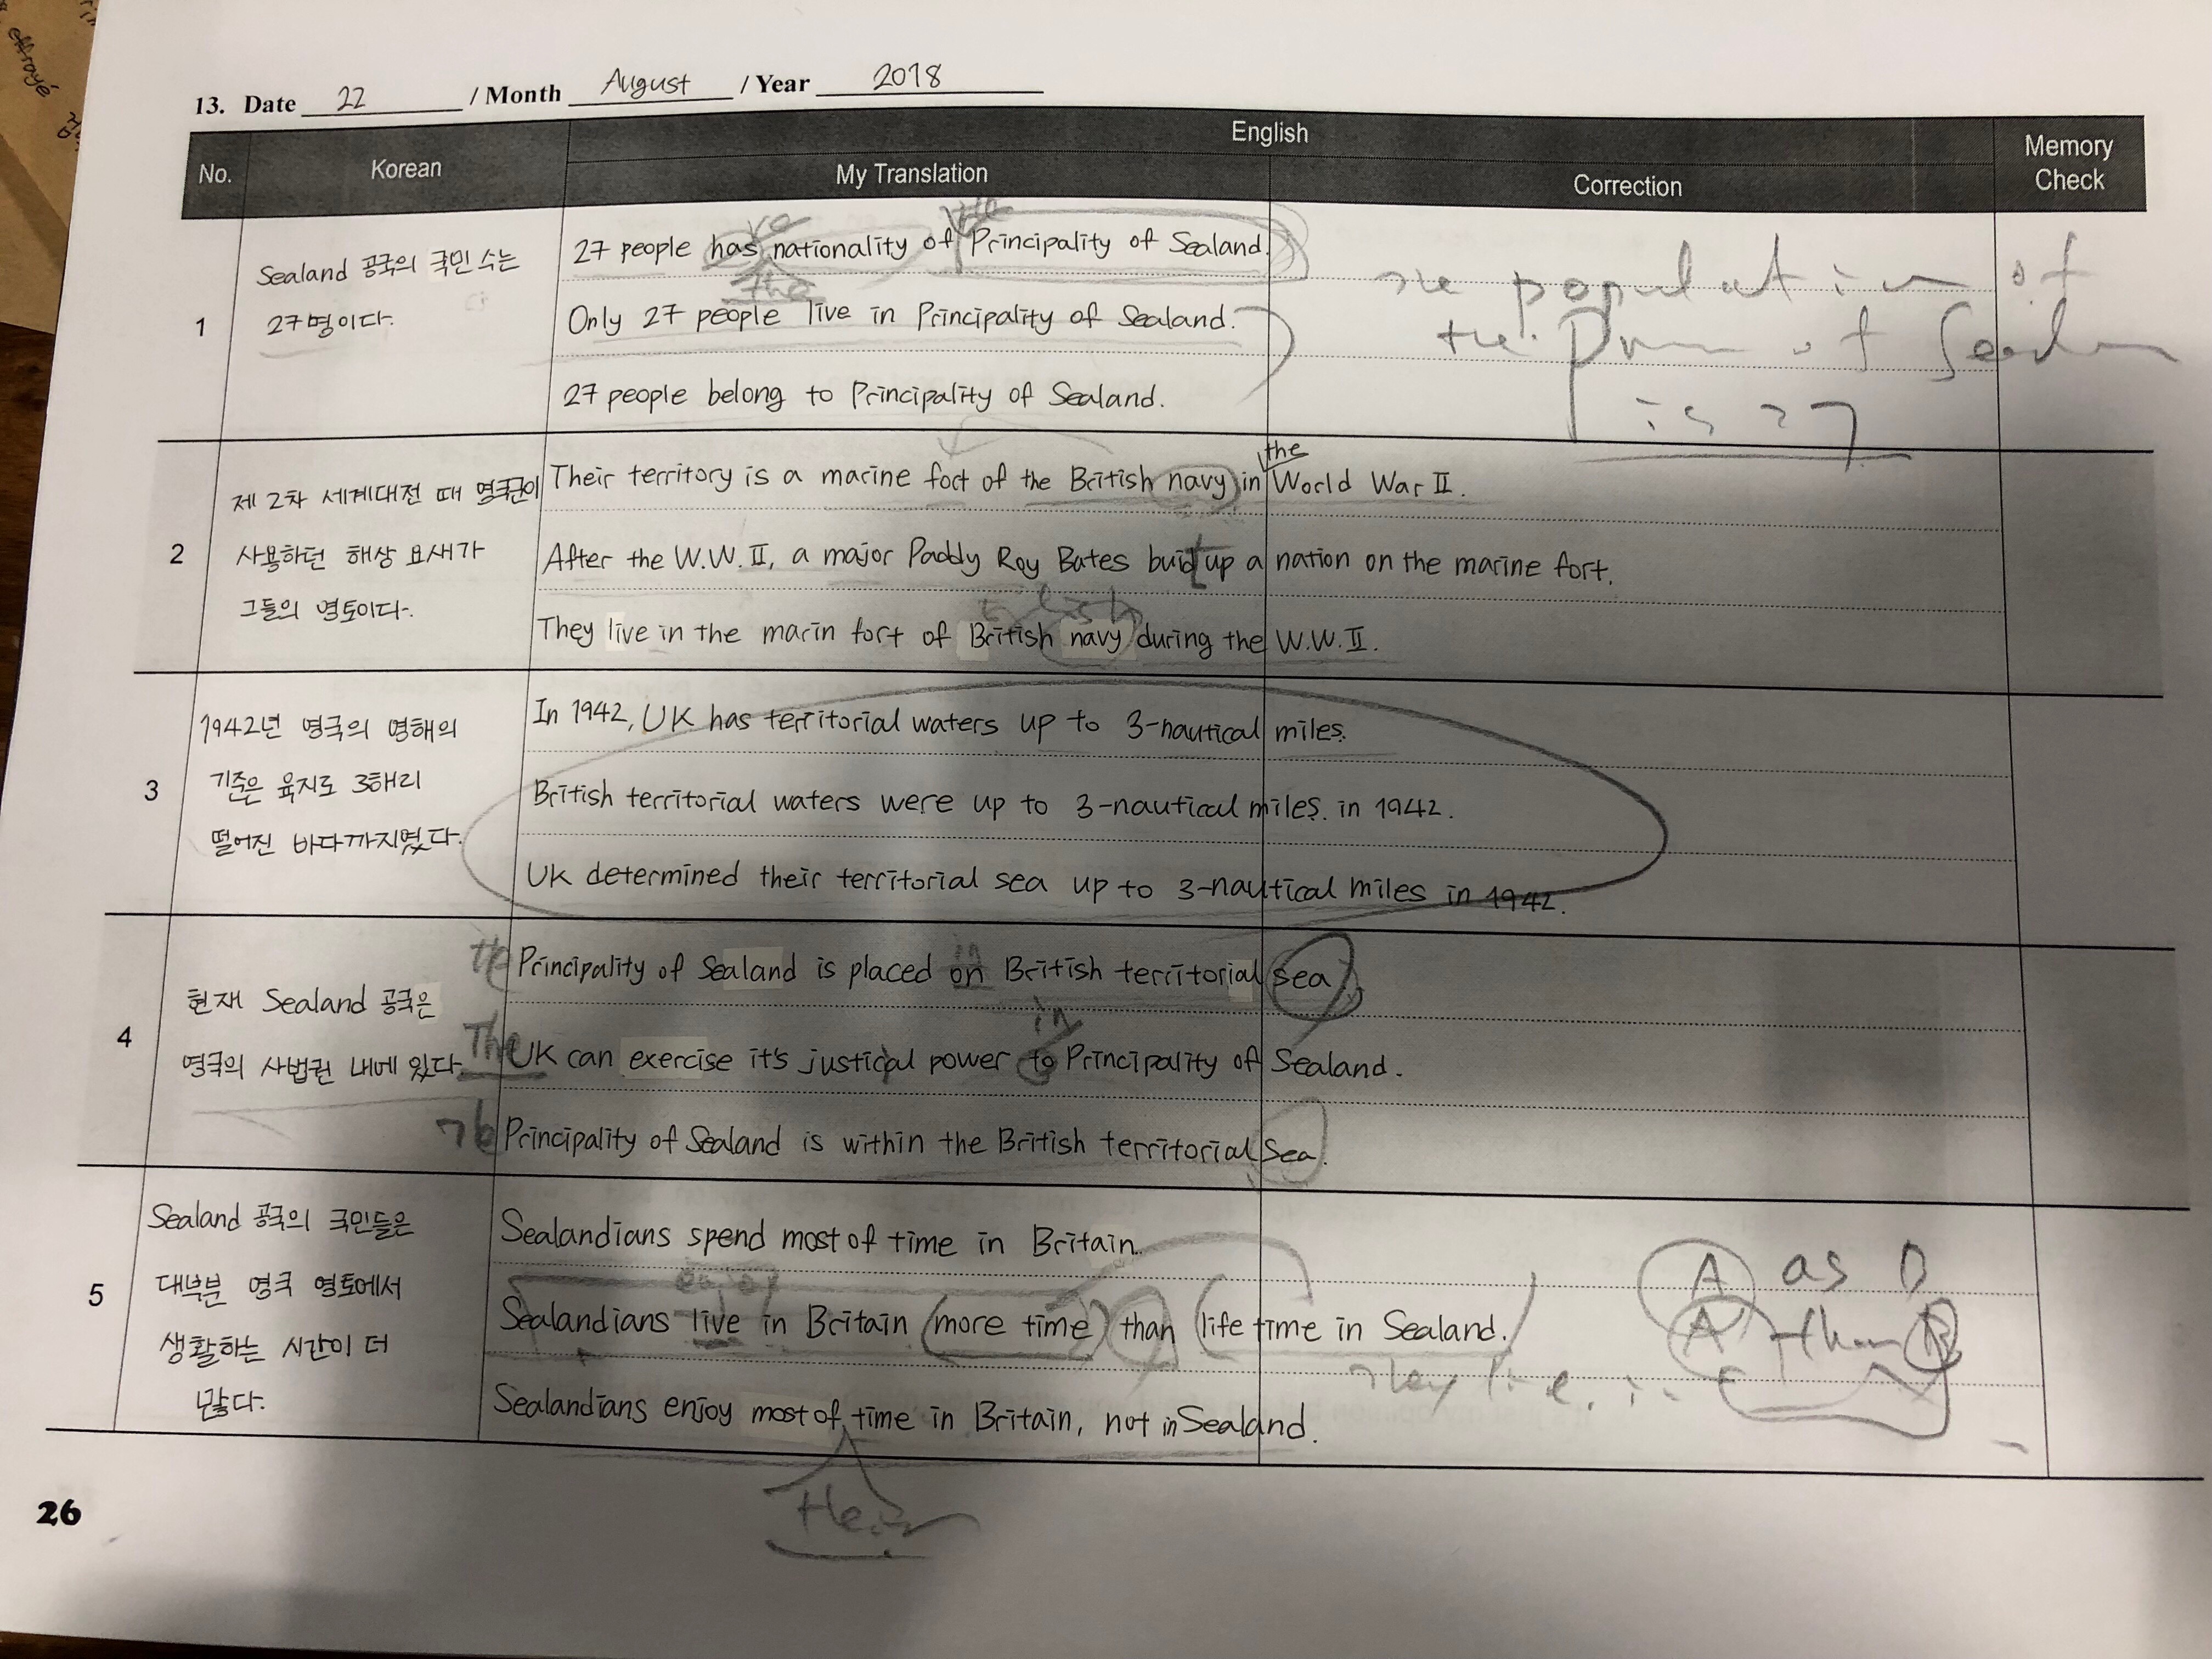 effrayé
13. Date 22 / Month August / Year 2018
No. Korean English Memory Check
My Translation Correction
1
Sealand 공국의 국민 수는
27명이다.
ve the
27 people has nationality of Principality of Sealand.
the
Only 27 people live in Principality of Sealand.
27 people belong to Principality of Sealand.
The population of
the of
is 27
2
제 2차 세계대전 때 영국군이
사용하던 해상 요새가
그들의 영토이다.
the
Their territory is a marine fort of the British navy in World War II.
After the W.W. II, a major Paddy Roy Bates buidt up a nation on the marine fort.
They live in the marin fort of British navy during the W.W. II.
3
1942년 영국의 영해의
기준은 육지로 3해리
떨어진 바다까지였다.
In 1942, UK has territorial waters up to 3-nautical miles.
British territorial waters were up to 3-nautical miles. in 1942.
UK determined their territorial sea up to 3-nautical miles in 1942.
4
현재 Sealand 공국은
영국의 사법권 내에 있다.
in
The Principality of Sealand is placed on British territorial sea.
in
The UK can exercise it's justical power to Principality of Sealand.
The Principality of Sealand is within the British territorial Sea.
5
Sealand 공국의 국민들은
대부분 영국 영토에서
생활하는 시간이 더
많다.
Sealandians spend most of time in Britain.
enjoy
Sealandians live in Britain more time than life time in Sealand.
Sealandians enjoy most of time in Britain, not in Sealand.
their
A as B
A than B
They
26